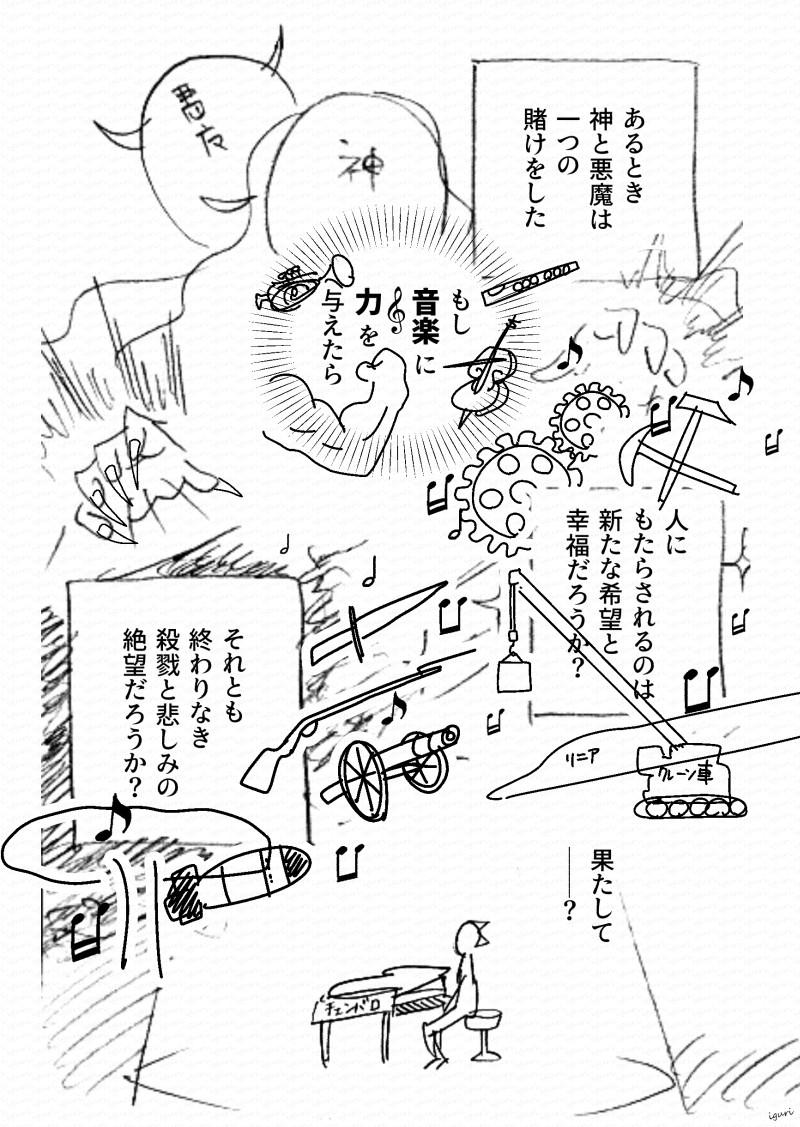 あるとき
神と悪魔は
一つの
賭けをした
神
もし
音楽に
力を
与えたら
人に
もたらされるのは
新たな希望と
幸福だろうか?
それとも
終わりなき
殺戮と悲しみの
絶望だろうか?
リニア
クレーン車
果たして
――?
チェンバロ
iguri